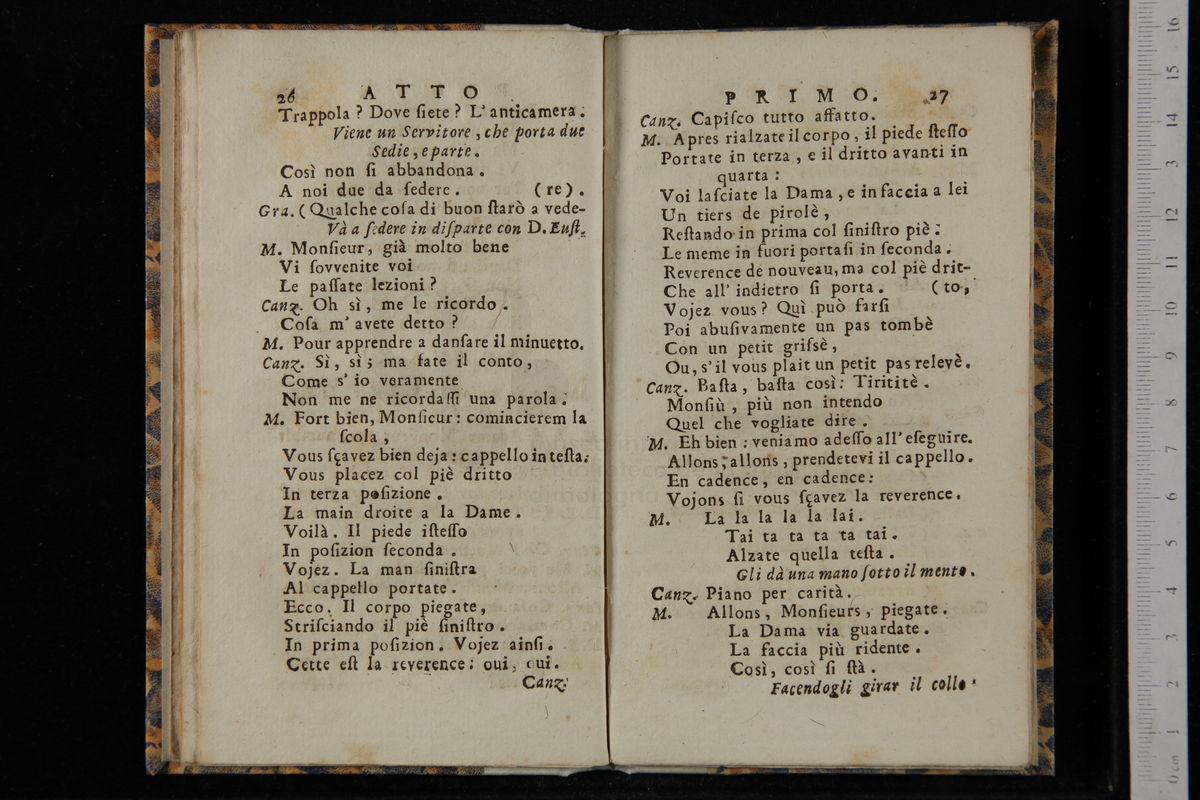 26 ATTO
Trappola ? Dove ſiete ? L' anticamera.
Viene un Servitore , che porta due
Sedie , e parte.
Così non ſi abbandona .
A noi due da ſedere . (re) .
Gra. ( Qualche coſa di buon ſtarò a vede-
Và a ſedere in diſparte con D. Euſt.
M. Monſieur, già molto bene
Vi ſovvenite voi
Le paſſate lezioni ?
Canz. Oh sì, me le ricordo .
Coſa m' avete detto ?
M. Pour apprendre a danſare il minuetto.
Canz. Sì, sì ; ma fate il conto,
Come s' io veramente
Non me ne ricordaſſi una parola .
M. Fort bien, Monſieur : comincierem la
ſcola ,
Vous ſçavez bien deja : cappello in teſta.
Vous placez col piè dritto
In terza poſizione .
La main droite a la Dame .
Voilà . Il piede iſteſſo
In poſizion ſeconda .
Vojez . La man ſiniſtra
Al cappello portate .
Ecco . Il corpo piegate,
Striſciando il piè ſiniſtro .
In prima poſizion . Vojez ainſi .
Cette eſt la reverence : oui, oui.
Canz.
PRIMO. 27
Canz. Capiſco tutto affatto.
M. Apres rialzate il corpo , il piede ſteſſo
Portate in terza , e il dritto avanti in
quarta :
Voi laſciate la Dama , e in faccia a lei
Un tiers de pirolè ,
Reſtando in prima col ſiniſtro piè :
Le meme in fuori portaſi in ſeconda .
Reverence de nouveau, ma col piè drit-
Che all' indietro ſi porta . (to,
Vojez vous ? Quì può farſi
Poi abuſivamente un pas tombè
Con un petit griſsè ,
Ou, s' il vous plait un petit pas relevè.
Canz. Baſta , baſta così : Tirititè .
Monſiù , più non intendo
Quel che vogliate dire .
M. Eh bien : veniamo adeſſo all' eſeguire.
Allons , allons , prendetevi il cappello .
En cadence , en cadence :
Vojons ſi vous ſçavez la reverence .
M. La la la la la lai .
Tai ta ta ta ta tai .
Alzate quella teſta .
Gli dà una mano ſotto il mento .
Canz. Piano per carità .
M. Allons , Monſieurs , piegate .
La Dama via guardate .
La faccia più ridente .
Così , così ſi ſtà .
Facendogli girar il collo